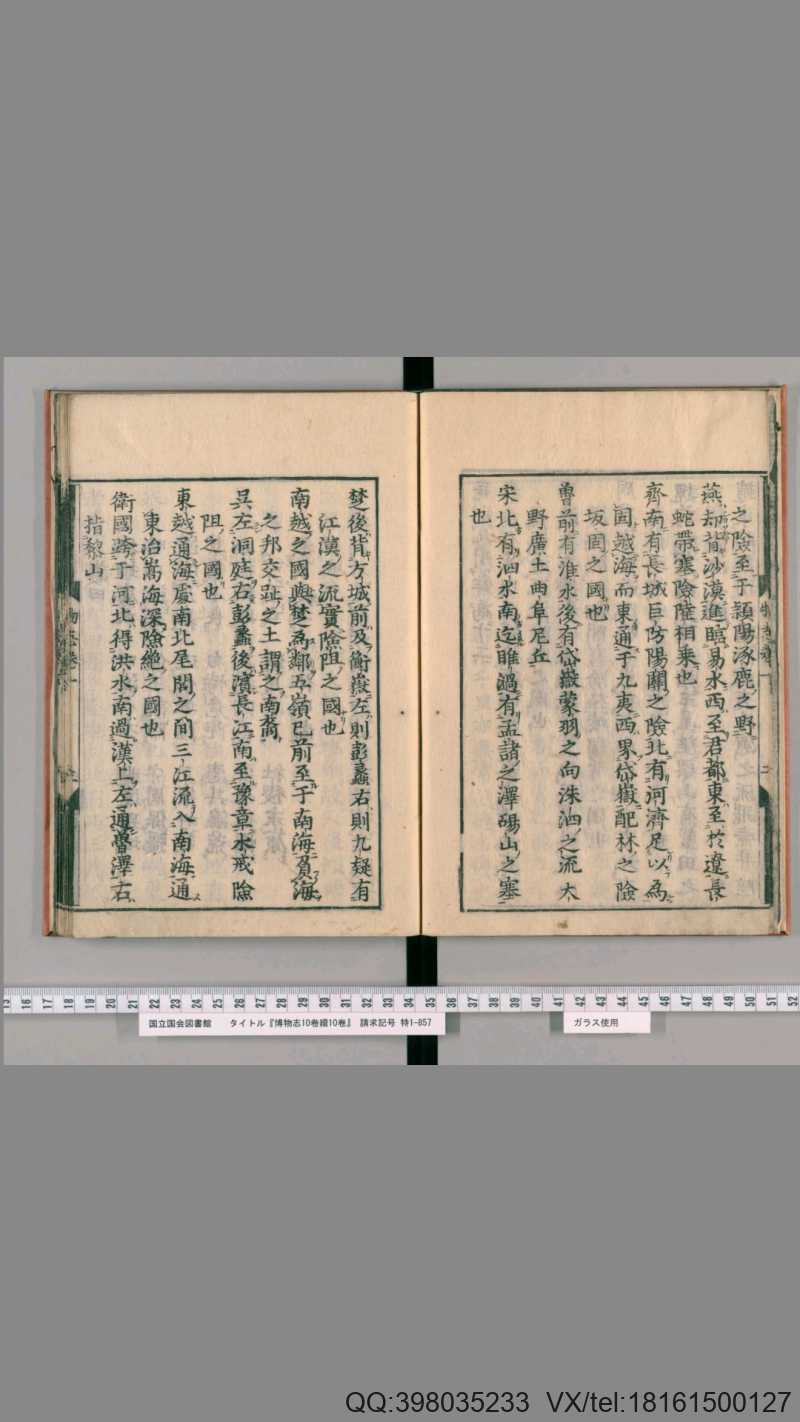 之險至于頴陽涿鹿之野
燕却背沙漠進臨易水西至君都東至於遼長
蛇帶塞險陸相乗也
齊南有長城巨防陽關之險北有河濟足以為
固越海而東通于九夷西界岱嶽配林之險
坂固之國也
魯前有淮水後有岱嶽蒙羽之向洙泗之流大
野廣土曲阜尼丘
宋北有泗水南迄睢濄有孟諸之澤碭山之塞
也
楚後背方城前及衡嶽左則彭蠡右則九疑有
江漢之流實險阻之國也
南越之國與楚為鄰五嶺已前至于南海負海
之邦交趾之土謂之南裔
吳左洞庭右彭蠡後濱長江南至豫章水戒險
阻之國也
東越通海處南北尾閭之間三江流入南海通
東治嵩海深險絶之國也
衛國跨于河北得洪水南過漢上左通魯澤右
指黎山
国立国会図書館 タイトル『博物志10巻續10巻』 請求記号 特1-857
ガラス使用
QQ:398035233 VX/tel:18161500127